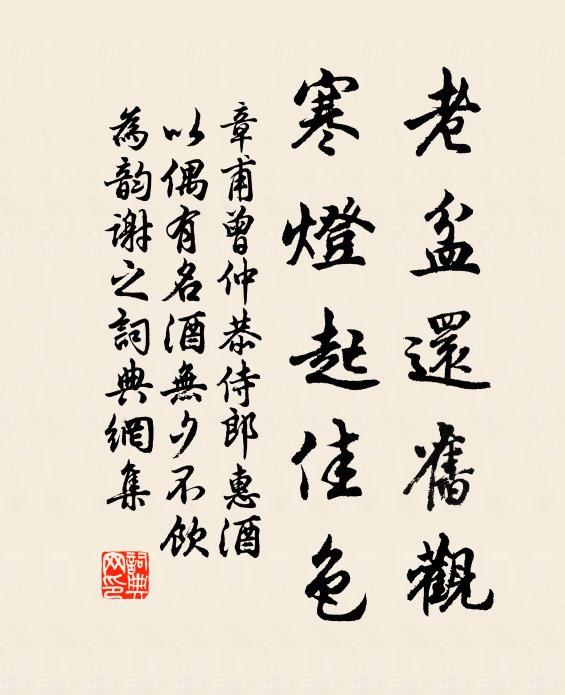 老盆還舊觀
寒燈起佳色
章甫曾仲恭侍郎惠酒
以偶有名酒無夕不飲
為韵謝之詞典網集
詞典网印